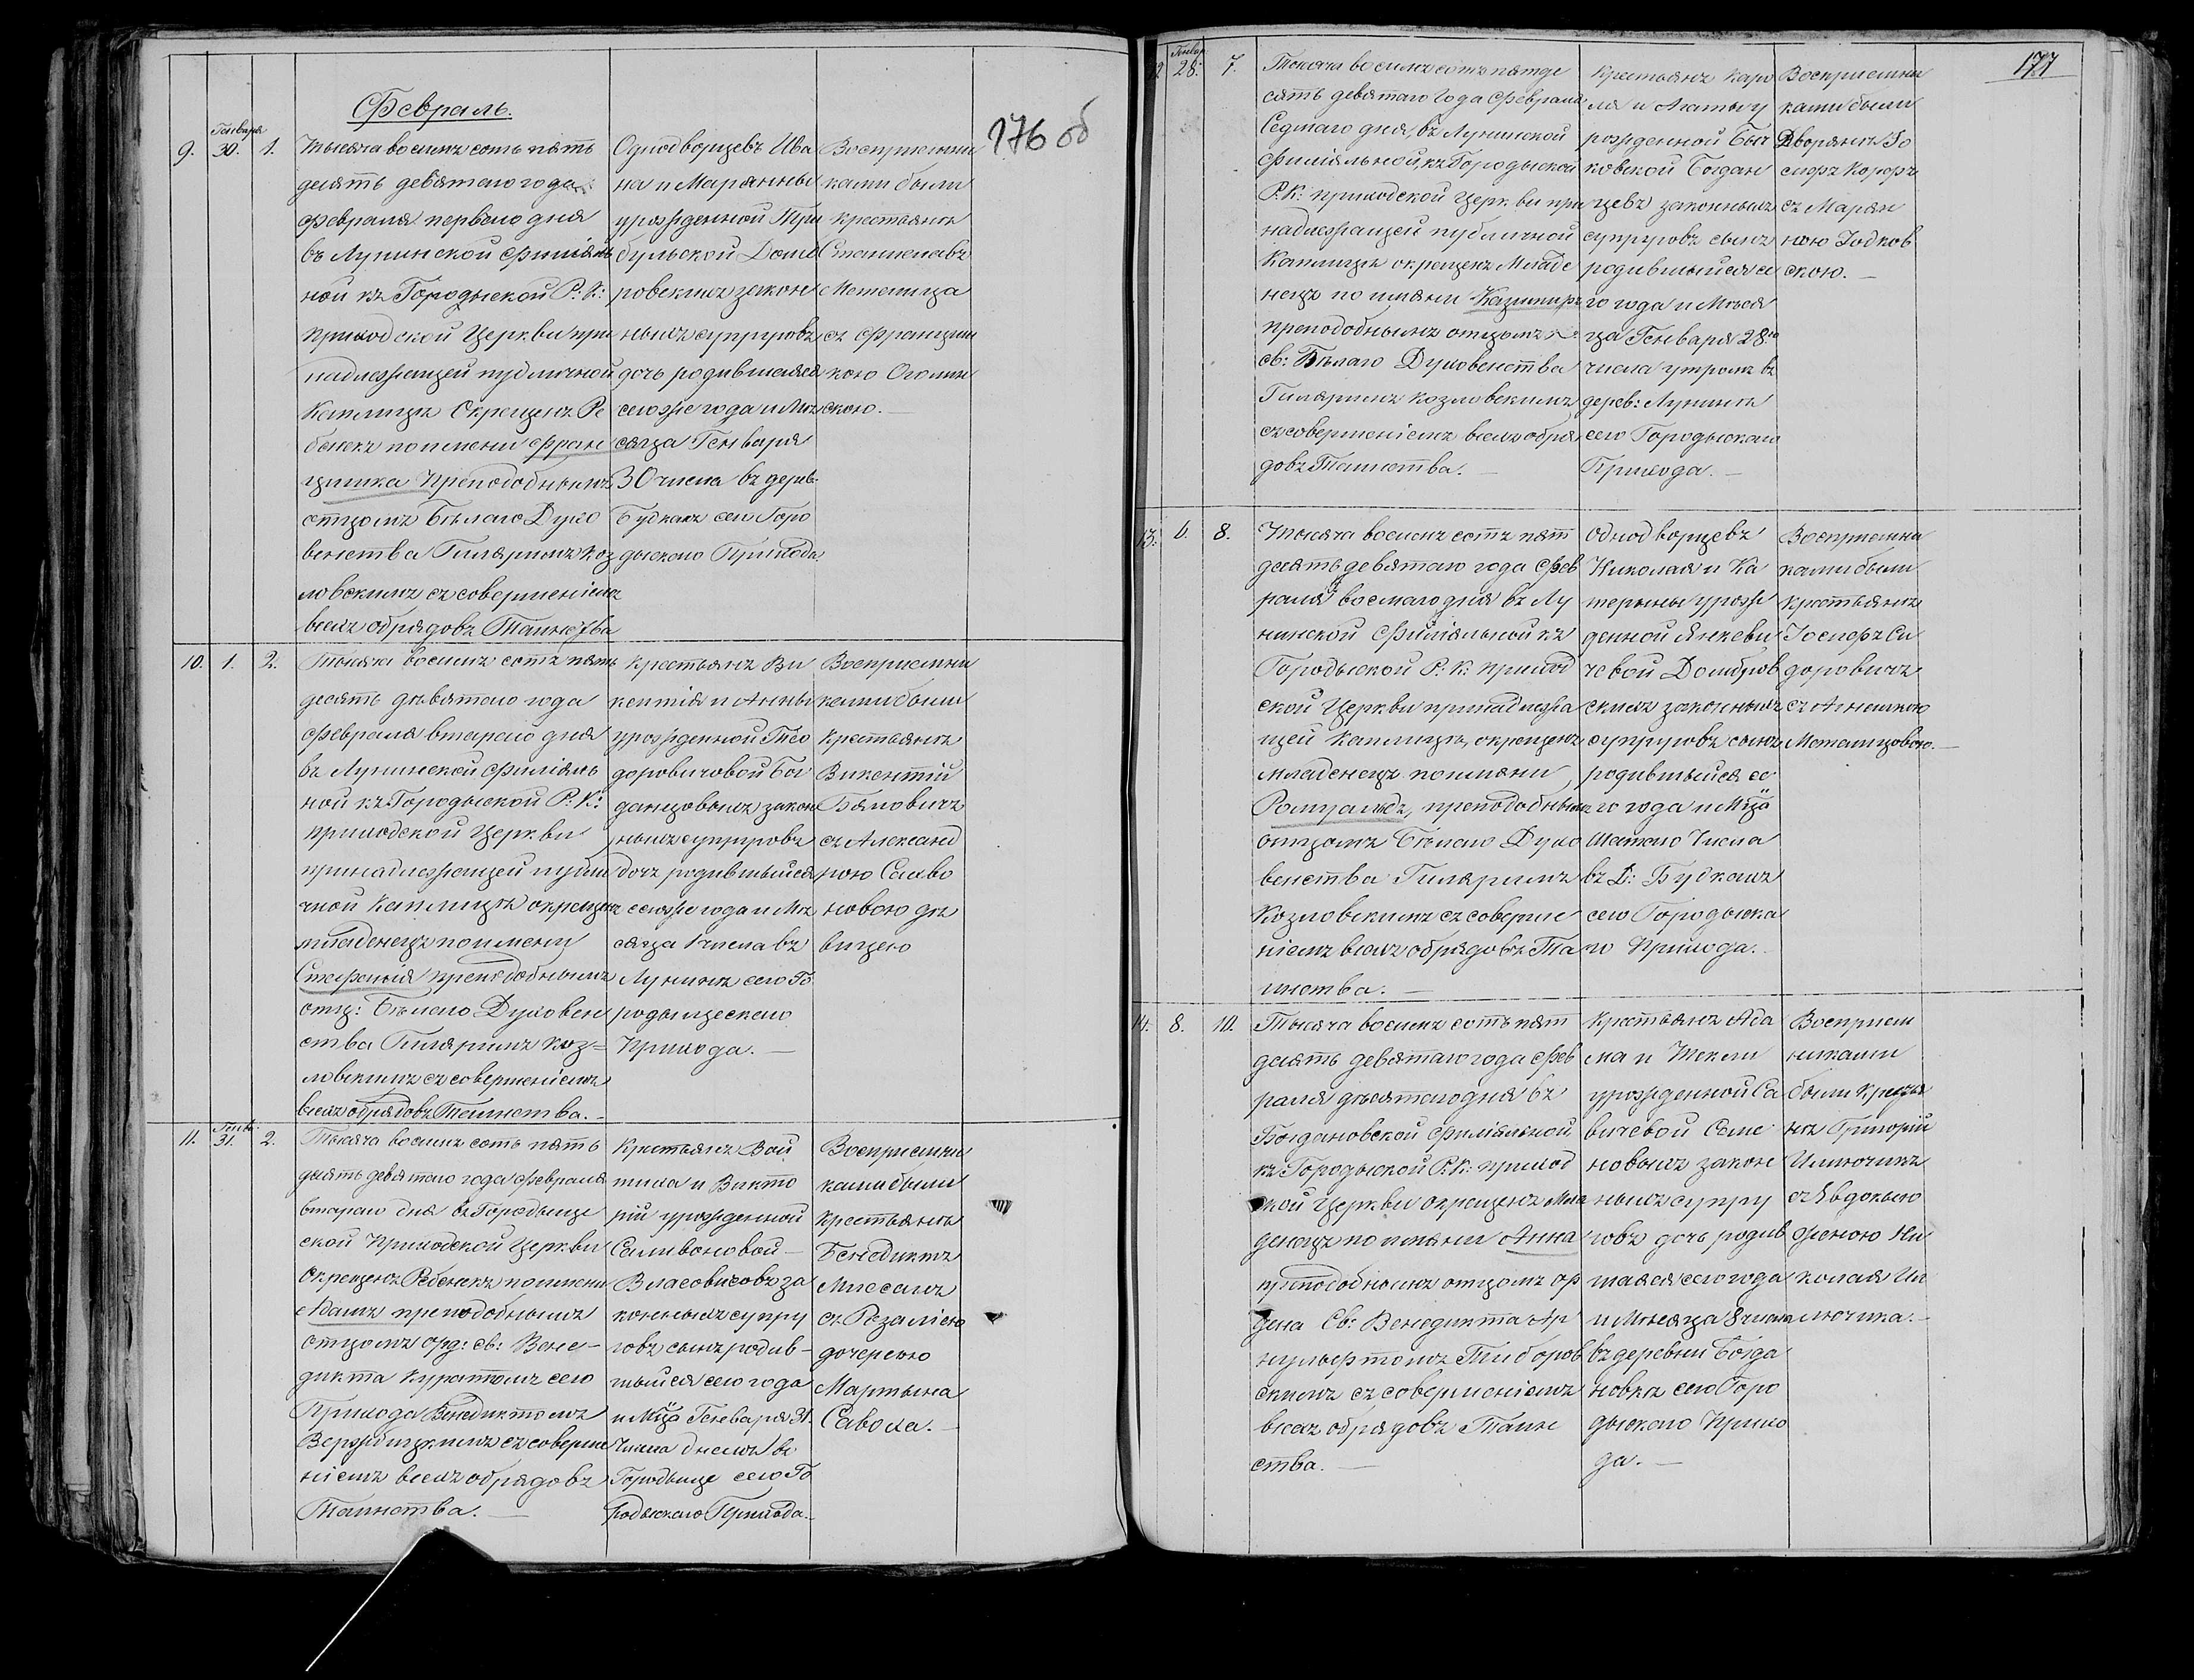 Февраль.
176 об
9. Генваря 30. 1.
Тысяча восемь сотъ пять
десятъ девятаго года
февраля перваго дня
въ Лунинской филіяль
ной къ Городыской Р: К:
приходской Церкви при
надлежащей публичной
Каплицѣ Окрещенъ Ре
бенокъ по имени Фран
цишка Преподобнымъ
отцомъ Бѣлаго Духо
венства Гиляримъ Коз
ловскимъ съ совершеніемъ
всехъ обрядовъ Таинства
Однодворцевъ Ива
на и Маріанны
урожденной Три
бульской Домб
ровскихъ закон
ныхъ супруговъ
дочь родившаяся
сего же года и Мѣ
сяца Генваря
30 числа въ дерев:
Будкахъ сего Горо
дыскаго Прихода.
Восприемни
ками были
крестьянъ
Станиславъ
Метелица
съ Францыш
кою Оголин
скою.
10. 1. 2.
Тысяча восемь сотъ пять
десятъ девятаго года
февраля втараго дня
въ Лунинской филіяль
ной къ Городыской Р: К:
приходской Церкви
принадлежащей публи
чной Каплицѣ окрещенъ
младенецъ по имени
Стефанія преподобнымъ
отц: Бѣлаго Духовен
ства Гиляримъ Коз=
ловскимъ съ совершеніемъ
всехъ обрядовъ Таинства.
Крестьянъ Ви
кентія и Анны
урожденной Тео
доровичовой Бог
данцовыхъ закон
ныхъ супруговъ
дочь родившыйся
сего же года и Мѣ
сяца 1 числа въ
Лунинѣ сего Го
родыщескаго
Прихода.
Восприемни
ками были
Крестьянъ
Викентій
с Александ
рою Салво
новою дѣ
вицею
11. Генв: 31. 2.
Тысяча восемь сотъ пять
десятъ девятаго года февраля
втараго дня въ Городыще
ской Приходской Церкви
Окрещенъ Ребенокъ по имени
Адамъ преподобнымъ
отцомъ орд: св: Бене-
дикта Куратомъ сего
Прихода Бенедиктомъ
Вержбицкимъ съ соверше
ніемъ всехъ обрядовъ
Таинства.
Крестьянъ Вой
тиха и Викто
ріи урожденной
Саливоновой
Власовичовъ за
конныхъ супру
говъ сынъ родив-
шыйся сего года
и Мца Генваря 31.
Числа днемъ въ
Городыще сего Го
родыскаго Прихода.
Восприемни
ками были
крестьянъ
Бенедиктъ
Миссанъ
съ Розаліею
дочерею
Мартына
Савона.
177
12. Генвар 28. 7.
Тысяча восемь сотъ пятде
сятъ девятаго года февраля
Седмаго дня, въ Лунинской
филіяльной, къ Городыской
Р: К: приходской церкви при
надлежащей публичной
Каплицѣ окрещенъ Младе
нецъ по имяни Казимиръ
преподобнымъ отцомъ
св: Бѣлаго Духовенства
Гиляримъ Козловскимъ
съ совершеніемъ всехъ обря
довъ Таинства.
Крестьянъ Каро
ля и Агаты у
рожденной Быч
ковской Богдан
цевъ законныхъ
супруговъ сынъ
родившыйся се
го года и Мѣся
ца Генваря 28.
числа утромъ въ
дерев: Лунинѣ
сего Городыскаго
Прихода.
Восприемни
ками были
Дворянъ Іо
сифъ
съ Марян
ною Зодков
скою.
13. 6. 8.
Тысяча восемь сотъ пят
десятъ девятаго года фев
раля восмаго дня въ Лу
нинской филіяльной къ
Городыской Р: К: приход
ской Церкви принадлежа
щей Каплицѣ, окрещенъ
младенецъ по имяни
Ромуальдъ, преподобнымъ
отцомъ Бѣлаго Духо
венства Гиляримъ
Козловскимъ съ соверше
ніемъ всехъ обрядовъ Та
инства.
Однодворцевъ
Николая и Ка
терыны урож
денной Янкеви
чевой Домбров
скихъ законныхъ
супруговъ сынъ
родившыйся се
го года и Мца
Шестаго Числа
въ Д: Будкахъ
сего Городыска
го Прихода.
Восприемни
ками были
крестьянъ
Іосифъ Си
доровичъ
съ Агнешкою
Метелицовою.
14. 8. 10.
Тысяча восемь сотъ пят
десятъ девятаго года фев
раля десятаго дня въ
Богдановской филіяльной
къ Городыской Р: К: приход
ской Церкви окрещенъ Мла
денецъ по имяни Анна
преподобнымъ отцомъ ор
дена Св: Бенедикта Ар
нульфтомъ Гиборов
скимъ съ совершеніемъ
всехъ обрядовъ Таин
ства.
Крестьянъ Ада
ма и Текли
урожденной Са
вичевой Семе
новыхъ закон
ныхъ супру
говъ дочь родив
шаяся сего года
и Мѣсяца 8 числа
въ деревни Богда
новкѣ сего Горо
дыскаго Прихо
да.
Восприем
никами
были Кресья
нъ Григорій
Илючикъ
съ Явдокыю
женою Ни
колая Ил
лючика.